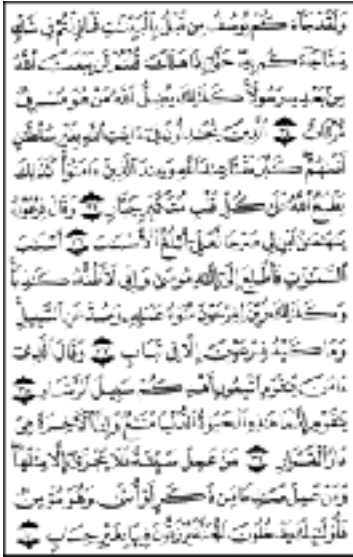 وَلَقَدْ جَاءَكُمْ يُوسُفُ مِن قَبْلُ بِالْبَيِّنَاتِ فَمَا زِلْتُمْ فِي شَكٍّ
مِّمَّا جَاءَكُم بِهِ حَتَّىٰ إِذَا هَلَكَ قُلْتُمْ لَن يَبْعَثَ اللَّهُ
مِن بَعْدِهِ رَسُولًا كَذَٰلِكَ يُضِلُّ اللَّهُ مَنْ هُوَ مُسْرِفٌ
مُّرْتَابٌ ٣٤ الَّذِينَ يُجَادِلُونَ فِي آيَاتِ اللَّهِ بِغَيْرِ سُلْطَانٍ
أَتَاهُمْ كَبُرَ مَقْتًا عِندَ اللَّهِ وَعِندَ الَّذِينَ آمَنُوا كَذَٰلِكَ
يَطْبَعُ اللَّهُ عَلَىٰ كُلِّ قَلْبِ مُتَكَبِّرٍ جَبَّارٍ ٣٥ وَقَالَ فِرْعَوْنُ
يَا هَامَانُ ابْنِ لِي صَرْحًا لَّعَلِّي أَبْلُغُ الْأَسْبَابَ ٣٦ أَسْبَابَ
السَّمَاوَاتِ فَأَطَّلِعَ إِلَىٰ إِلَٰهِ مُوسَىٰ وَإِنِّي لَأَظُنُّهُ كَاذِبًا
وَكَذَٰلِكَ زُيِّنَ لِفِرْعَوْنَ سُوءُ عَمَلِهِ وَصُدَّ عَنِ السَّبِيلِ
وَمَا كَيْدُ فِرْعَوْنَ إِلَّا فِي تَبَابٍ ٣٧ وَقَالَ الَّذِي
آمَنَ يَا قَوْمِ اتَّبِعُونِ أَهْدِكُمْ سَبِيلَ الرَّشَادِ ٣٨
يَا قَوْمِ إِنَّمَا هَٰذِهِ الْحَيَاةُ الدُّنْيَا مَتَاعٌ وَإِنَّ الْآخِرَةَ هِيَ
دَارُ الْقَرَارِ ٣٩ مَنْ عَمِلَ سَيِّئَةً فَلَا يُجْزَىٰ إِلَّا مِثْلَهَا
وَمَنْ عَمِلَ صَالِحًا مِّن ذَكَرٍ أَوْ أُنثَىٰ وَهُوَ مُؤْمِنٌ
فَأُولَٰئِكَ يَدْخُلُونَ الْجَنَّةَ يُرْزَقُونَ فِيهَا بِغَيْرِ حِسَابٍ ٤٠